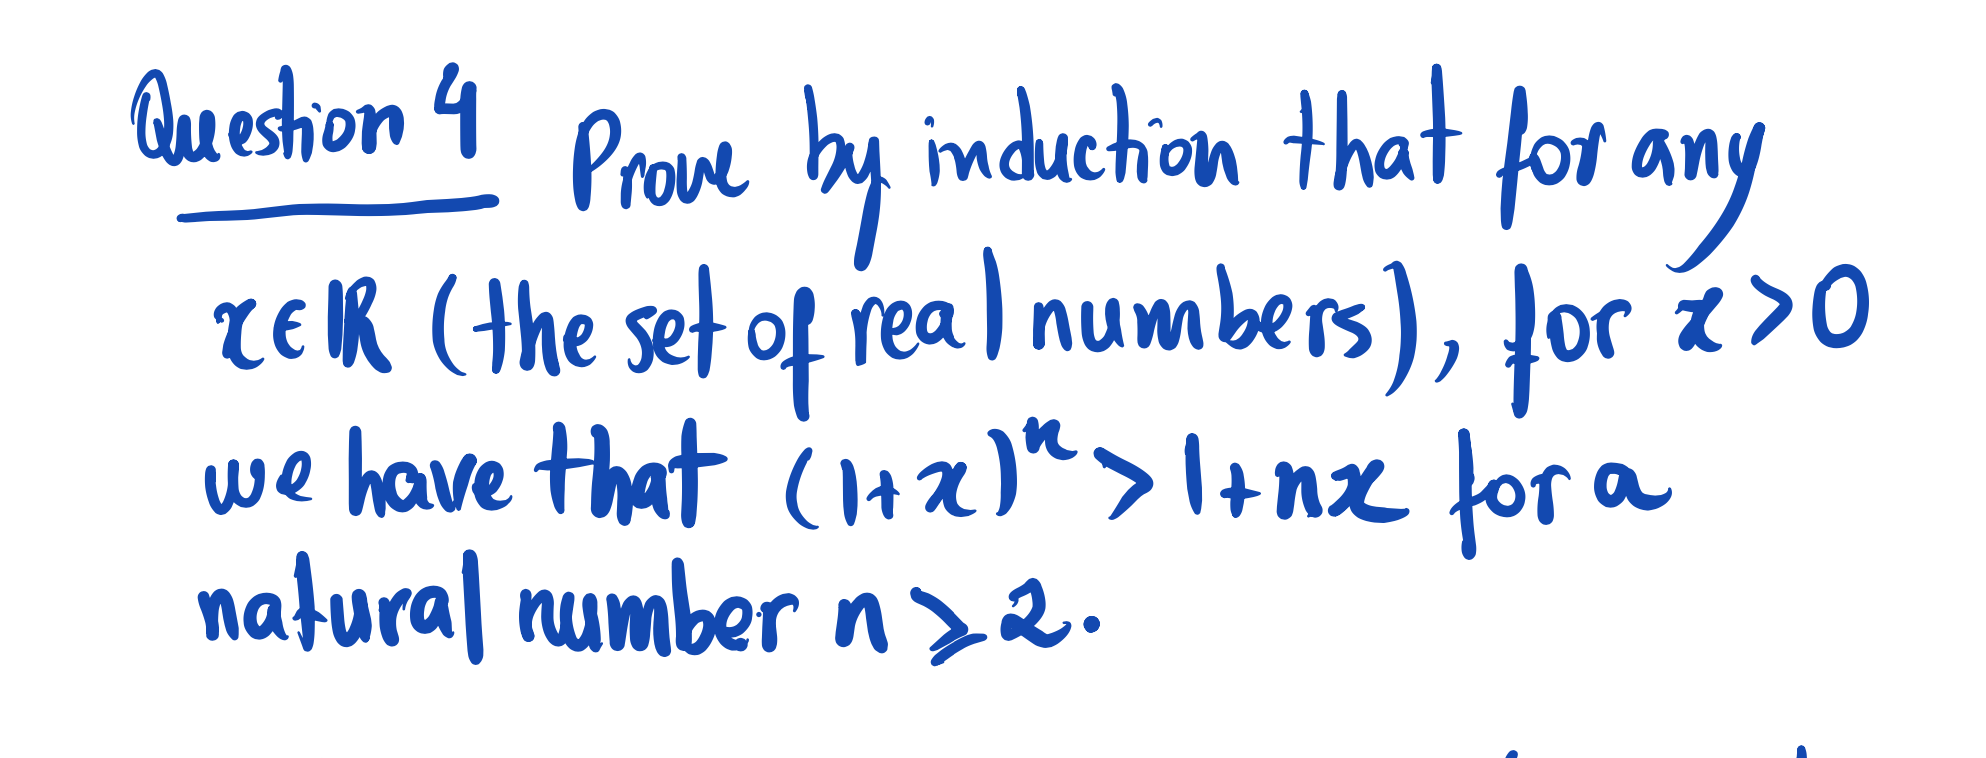 Question 4 Prove by induction that for any
x∈ℝ (the set of real numbers), for x>0
we have that (1+x)ⁿ > 1+nx for a
natural number n ≥ 2.